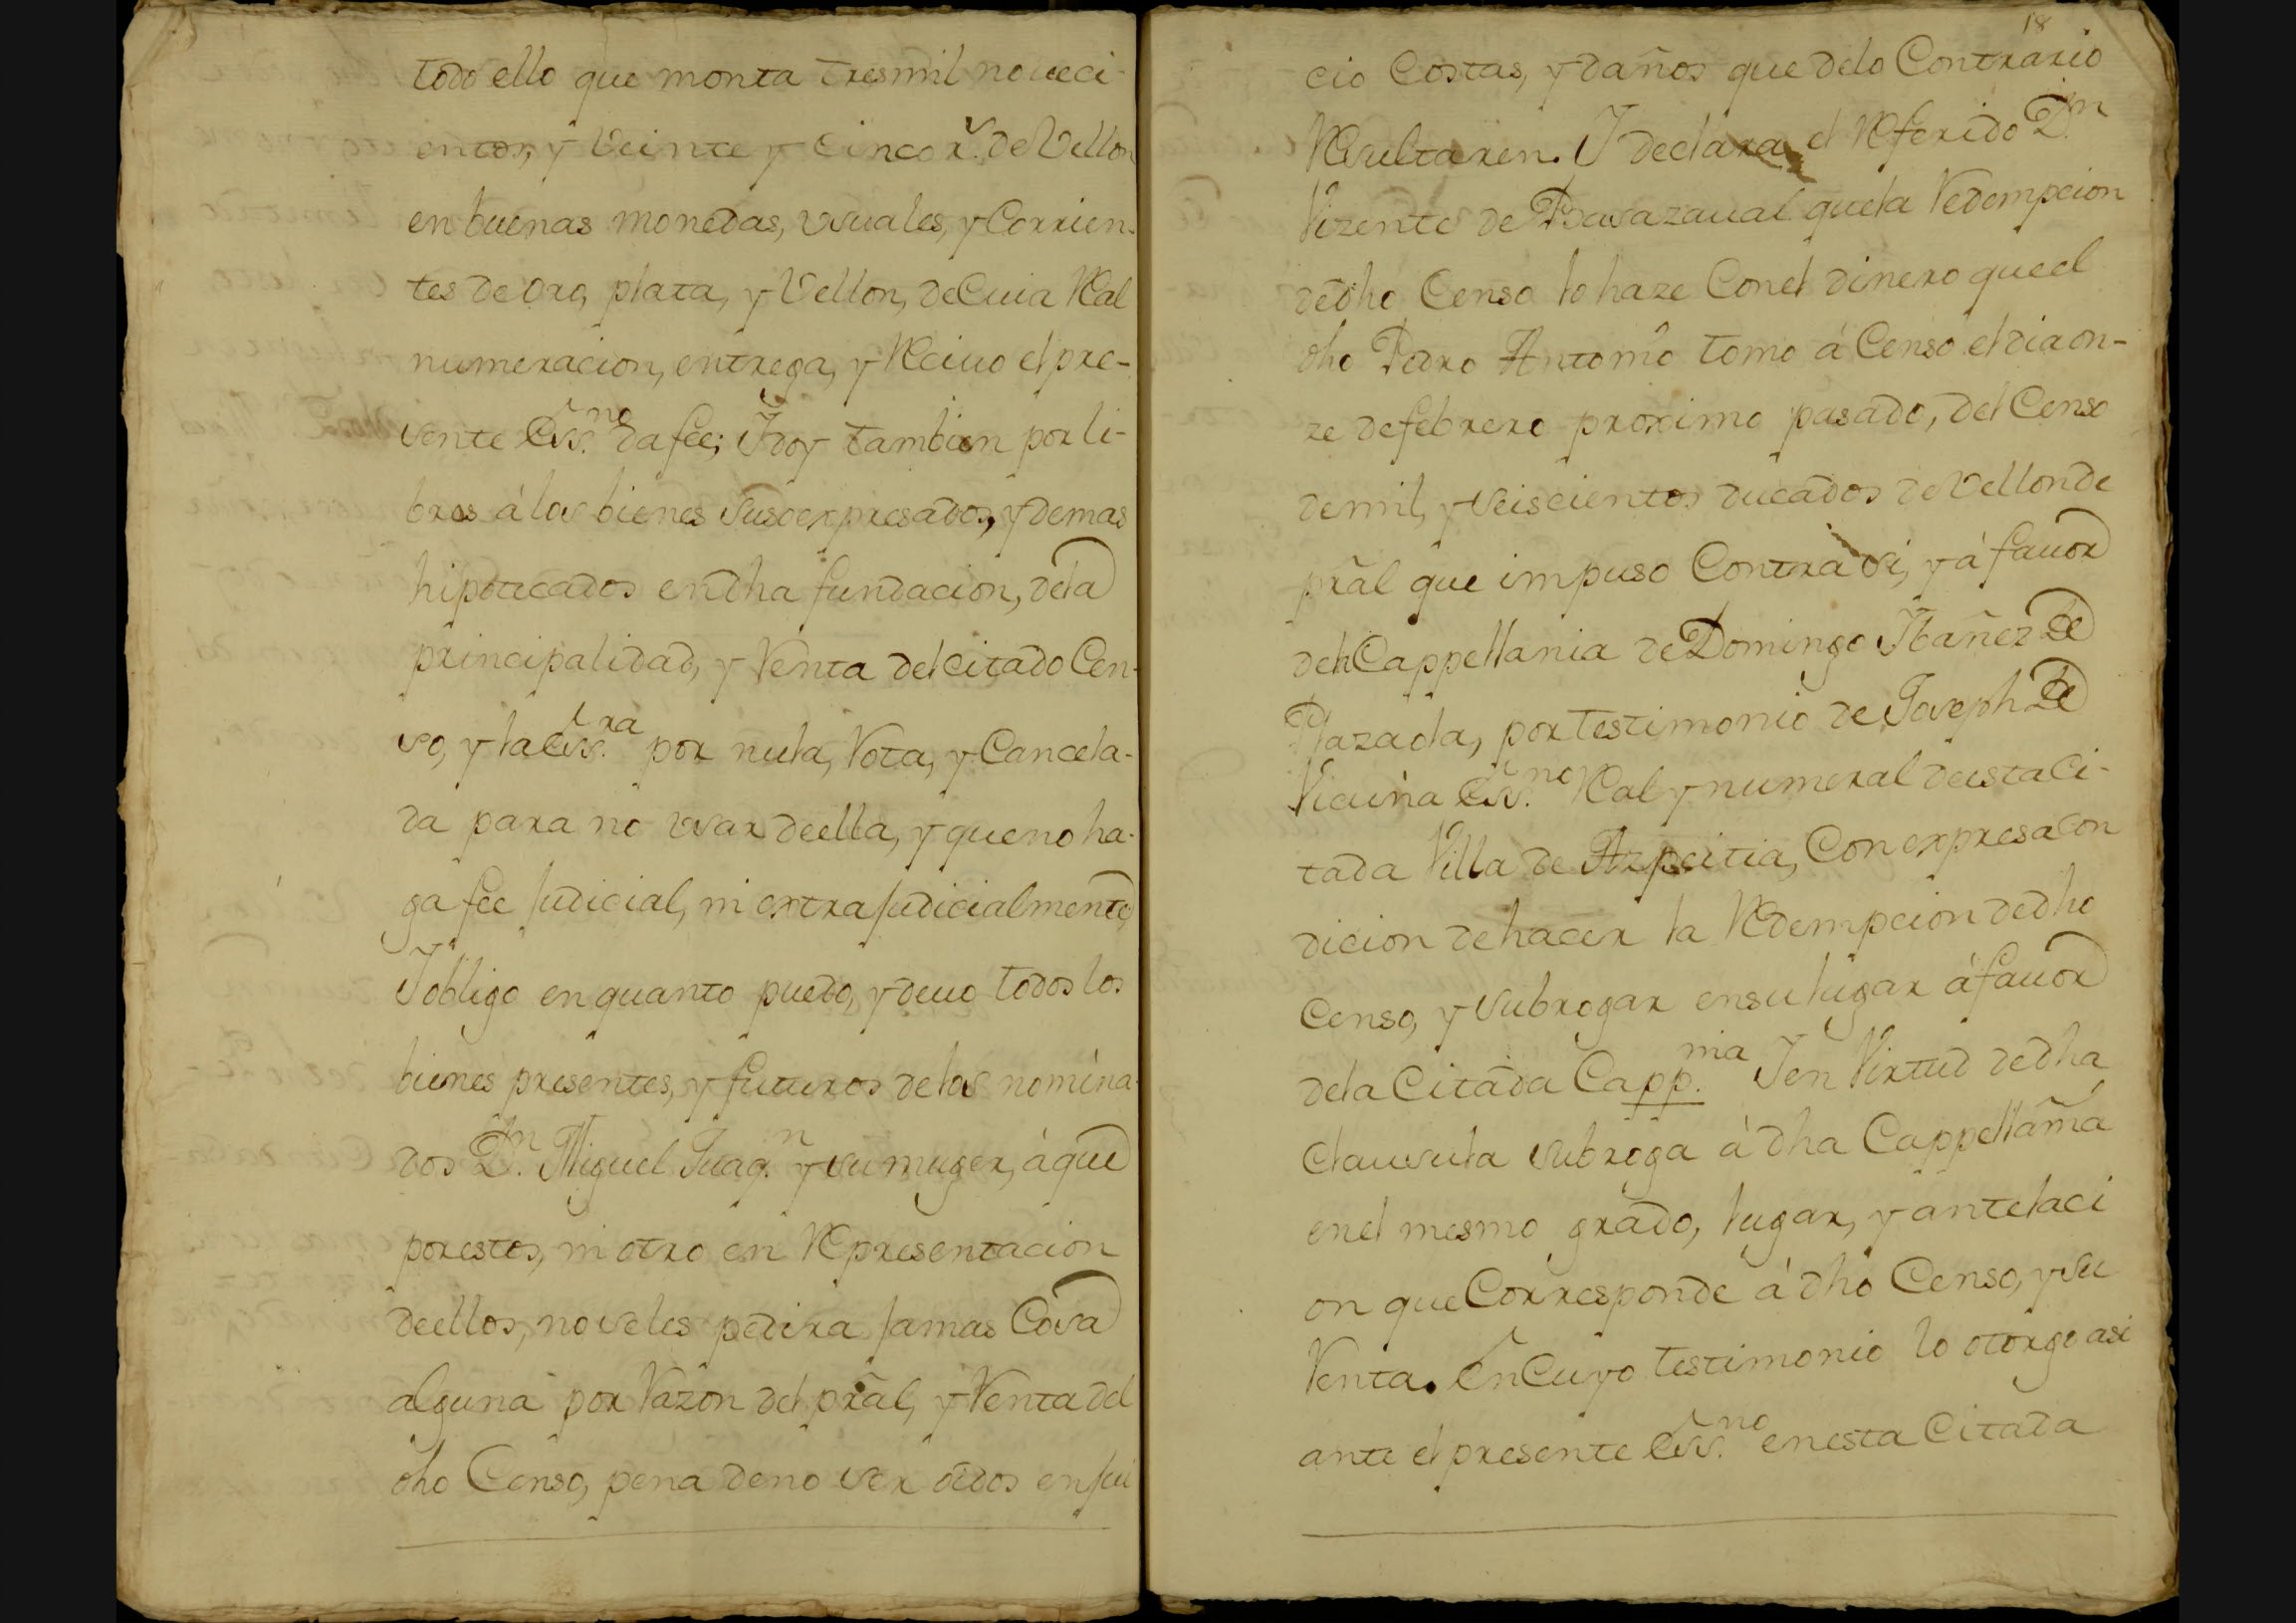 todo ello que monta tresmil noveci-
entos, y veinte y cinco r.s de Vellon
en buenas monedas, usuales, y Corrien-
tes de oro, plata, y Vellon, de Cuia Real
numeracion, entrega, y Reciuo el pre-
sente Ess.no da fee; Y doy tambien por li-
bres á los bienes susoexpresados, y demas
hipotecados en dha fundacion, dela
principalidad, y Renta del citado Cen-
so, y la ess.ra por nula, Rota, y Cancela-
da para no usar de ella, y que no ha-
ga fee Judicial, ni extrajudicialmente,
Y obligo en quanto puedo, y deuo todos los
bienes presentes, y futuros de los nomina-
dos D.n Miguel Juaq.n y su muger, á que
por estos, ni otro en Representacion
de ellos, no se les pedira jamas Cosa
alguna por Razon del pral, y Renta del
dho Censo, pena de no ser oidos en jui
18
cio Costas, y daños que delo Contrario
Resultaren. Y declara el Referido D.n
Vizente de Basazaual que la Redempcion
de dho Censo lo haze Con el dinero que el
dho Pedro Antonio tomo á Censo el dia on-
ze de febrero proximo pasado, del Censo
de mil, y seiscientos ducados de Vellon de
pral que impuso Contra si, y á fauor
dela Cappellania de Domingo Ibañez de
Plazaola, por testimonio de Joseph de
Vicuña Ess.no Real y numeral de esta Ci-
tada Villa de Azpeitia, Con expresa con
dicion de hacer la Redempcion de dho
Censo, y subrogar en su lugar á fauor
dela Citada Capp.nia Y en Virtud de dha
Clausula subroga á dha Cappellania
en el mesmo grado, lugar, y antelaci
on que Corresponde á dho Censo, y su
Renta. En Cuyo testimonio lo otorgo asi
ante el presente Ess.no en esta Citada